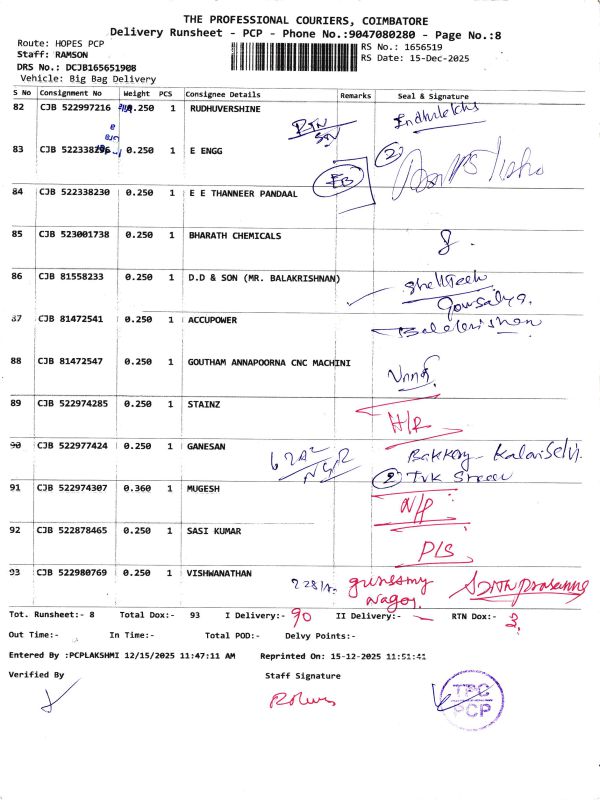 THE PROFESSIONAL COURIERS, COIMBATORE
Delivery Runsheet - PCP - Phone No.:9047080280 - Page No.:8
Route: HOPES PCP
RS No.: 1656519
Staff: RAMSON
RS Date: 15-Dec-2025
DRS No.: DCJB165651908
Vehicle: Big Bag Delivery
S No Consignment No Weight PCS Consignee Details Remarks Seal & Signature
82 CJB 522997216 0.250 1 RUDHUVERSHINE
83 CJB 522338296 0.250 1 E ENGG 2
84 CJB 522338230 0.250 1 E E THANNEER PANDAAL EB
85 CJB 523001738 0.250 1 BHARATH CHEMICALS
86 CJB 81558233 0.250 1 D.D & SON (MR. BALAKRISHNAN)
Gowsalya.
87 CJB 81472541 0.250 1 ACCUPOWER
Balakrishnan
88 CJB 81472547 0.250 1 GOUTHAM ANNAPOORNA CNC MACHINI
89 CJB 522974285 0.250 1 STAINZ
90 CJB 522977424 0.250 1 GANESAN
2
91 CJB 522974307 0.360 1 MUGESH
92 CJB 522878465 0.250 1 SASI KUMAR
93 CJB 522980769 0.250 1 VISHWANATHAN
Nagar
Tot. Runsheet:- 8 Total Dox:- 93 I Delivery:- 90 II Delivery:- RTN Dox:-
Out Time:- In Time:- Total POD:- Delvy Points:-
Entered By :PCPLAKSHMI 12/15/2025 11:47:11 AM Reprinted On: 15-12-2025 11:51:41
Verified By Staff Signature
TPC
PCP